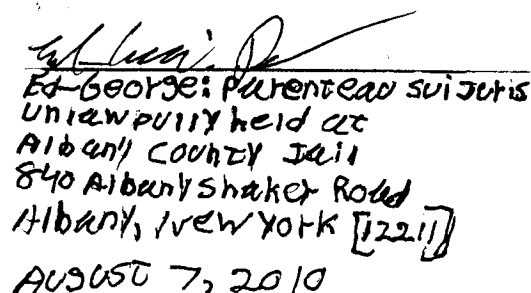 Ed-George: Parenteau sui juris
unlawfully held at
Albany County Jail
840 Albany Shaker Road
Albany, New York [12211]
August 7, 2010